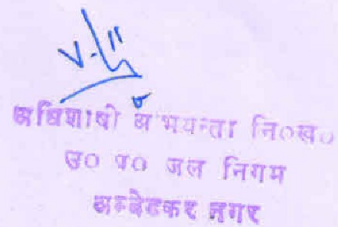 अधिशाषी अभियन्ता नि०ख०
उ० प्र० जल निगम
अम्बेडकर नगर